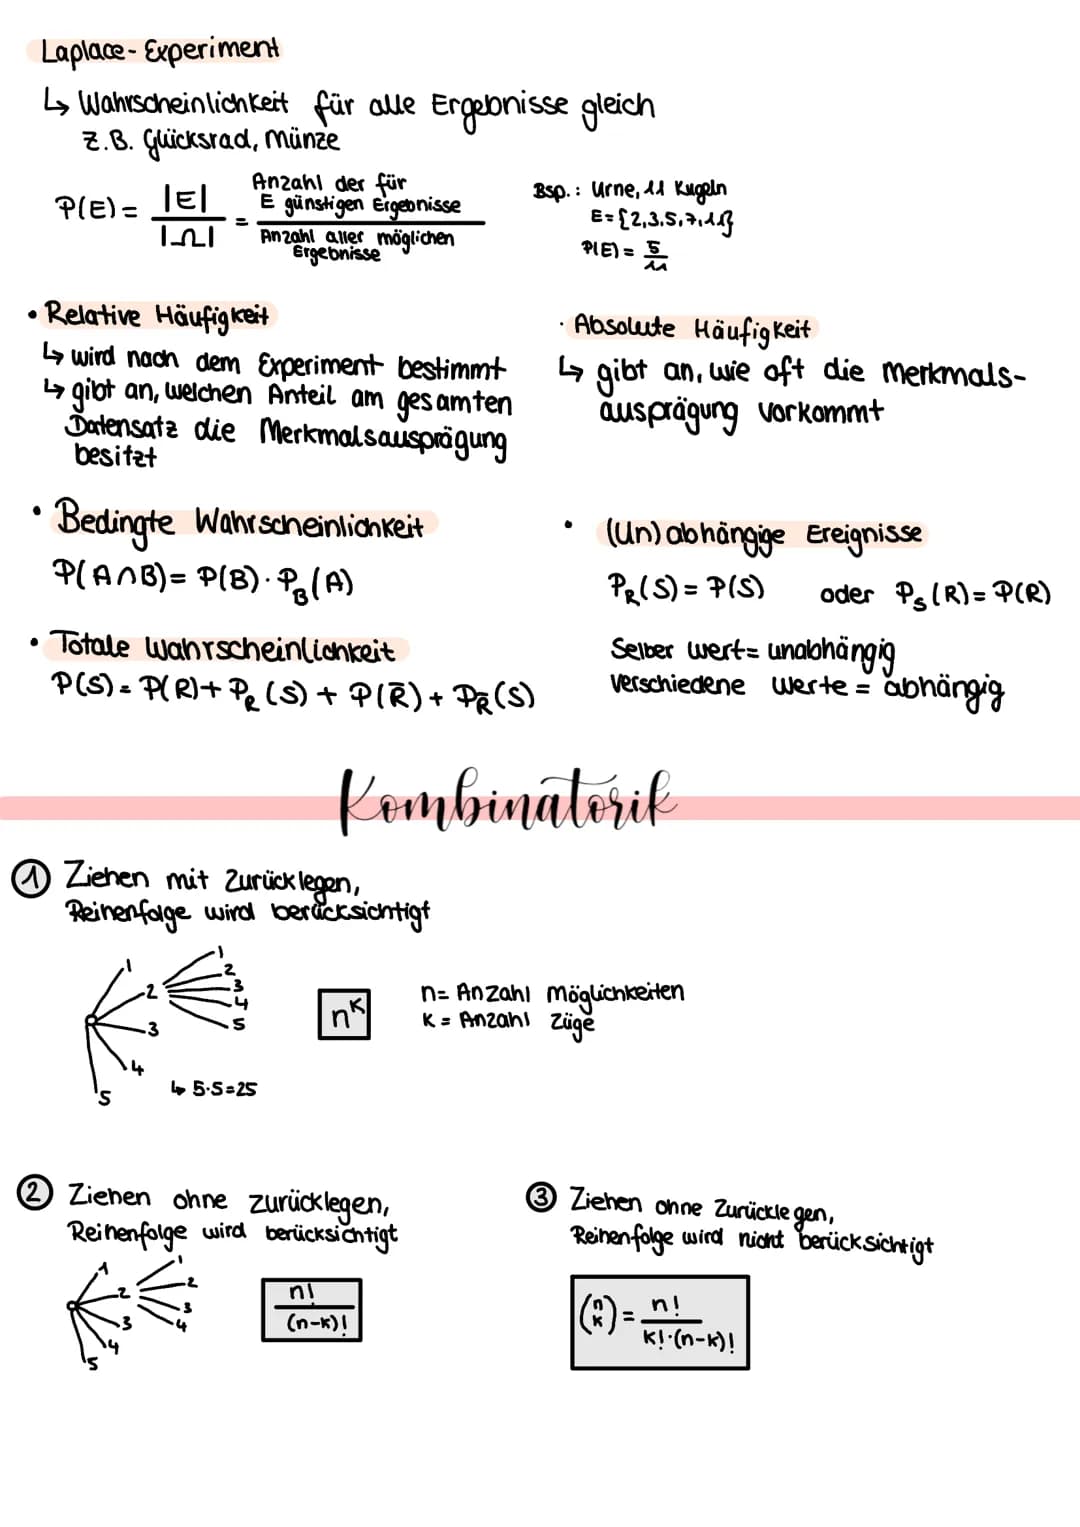 Laplace-Experiment
↳ Wahrscheinlichkeit für alle Ergebnisse gleich
z.B. Glücksrad, Münze
P(E) = |E| / |Ω| = Anzahl der für E günstigen Ergebnisse / Anzahl aller möglichen Ergebnisse
Bsp.: Urne, 11 Kugeln
E={2,3,5,7,11}
P(E) = 5/11
• Relative Häufigkeit
↳ wird nach dem Experiment bestimmt
↳ gibt an, welchen Anteil am gesamten
Datensatz die Merkmalsausprägung
besitzt
· Absolute Häufigkeit
↳ gibt an, wie oft die Merkmals-
ausprägung vorkommt
• Bedingte Wahrscheinlichkeit
P(A∩B) = P(B) · P_B(A)
• Totale Wahrscheinlichkeit
P(S) = P(R) + P_R(S) + P(R̄) + P_R̄(S)
• (Un)abhängige Ereignisse
P_R(S) = P(S) oder P_S(R) = P(R)
Selber Wert = unabhängig
Verschiedene Werte = abhängig
Kombinatorik
① Ziehen mit Zurücklegen,
Reihenfolge wird berücksichtigt
1
2
3
4
5
1
2
3
4
5
↳ 5·5=25
n^k
n = Anzahl Möglichkeiten
k = Anzahl Züge
② Ziehen ohne zurücklegen,
Reihenfolge wird berücksichtigt
1
2
3
4
5
1
2
3
4
n! / (n-k)!
③ Ziehen ohne Zurücklegen,
Reihenfolge wird nicht berücksichtigt
(n k) = n! / k!·(n-k)!